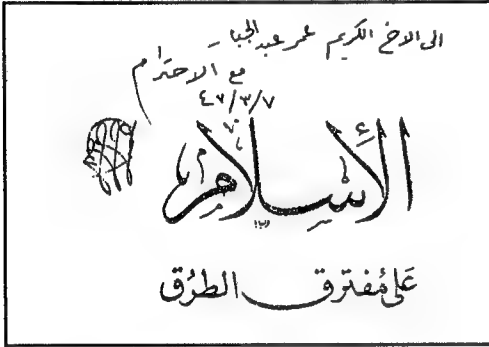 الى الاخ الكريم عمر عبد الجبار
مع الاحترام
الإسلام
على مفترق الطرق